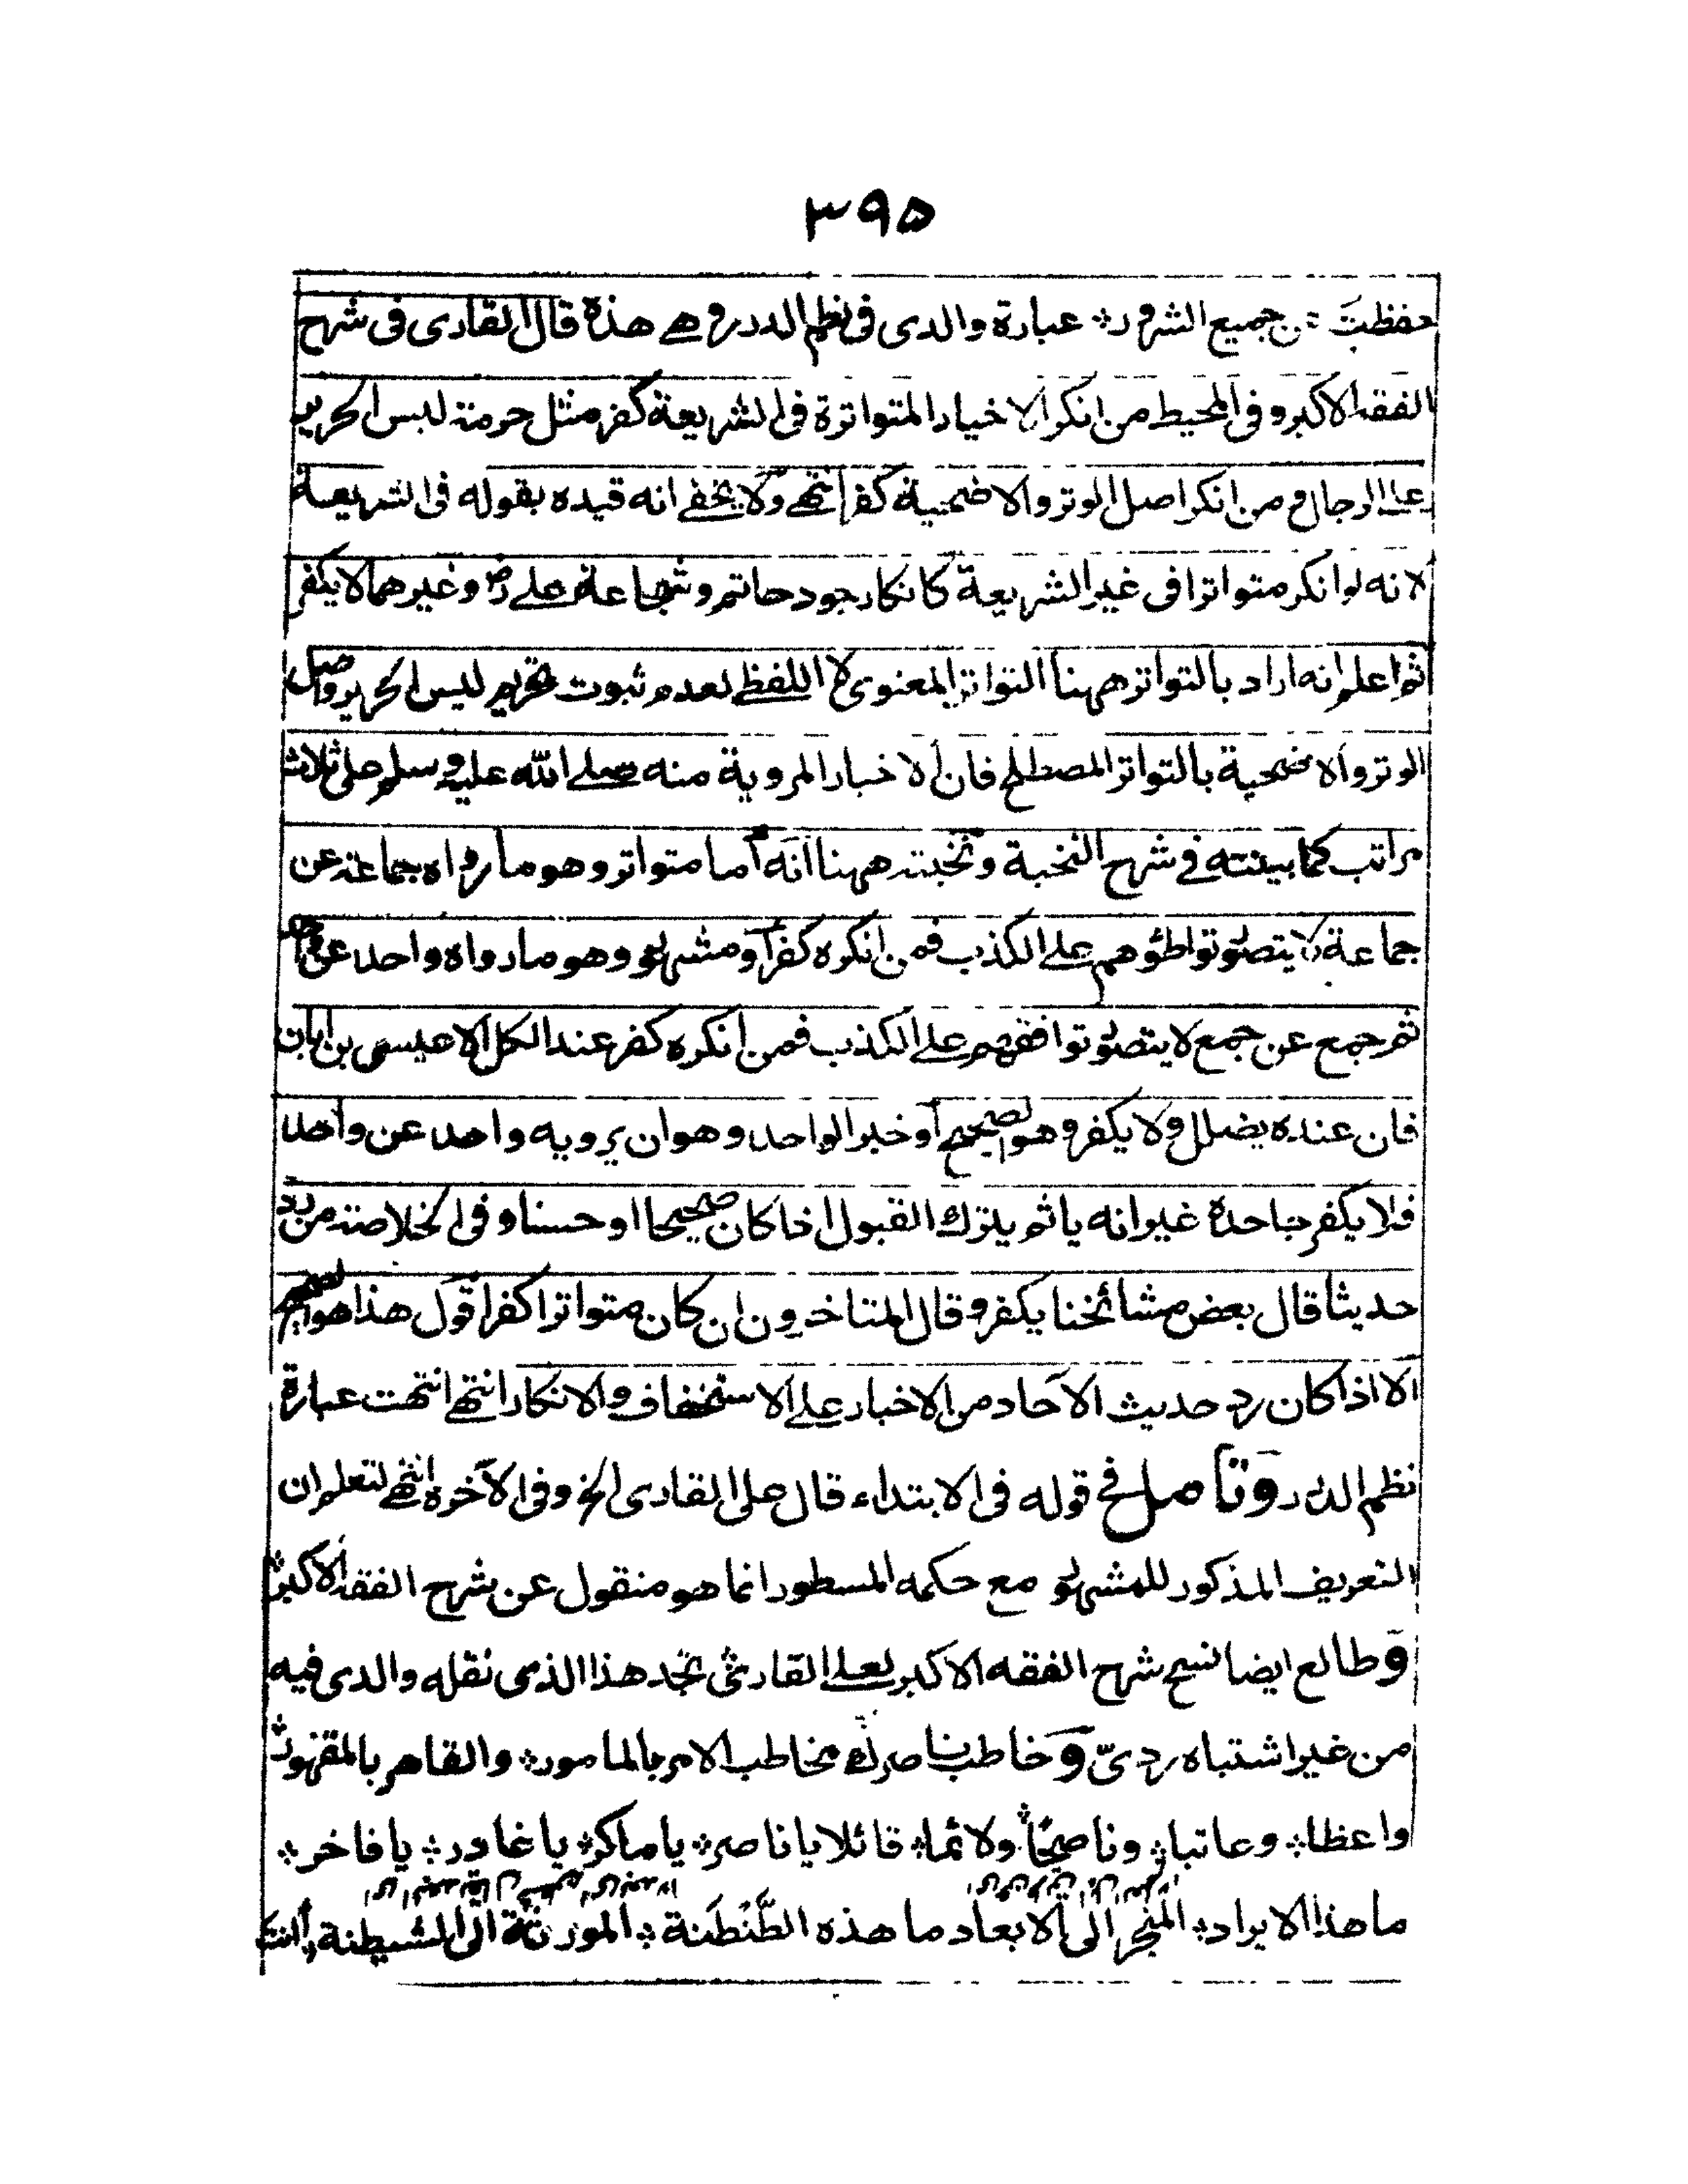 ۳۹۵
حفظتَ من جميع الشرور؞ عبارة والدى فى نظم الدرر و هے هذه قال القارى فى شرح
الفقه الاكبر و فى المحيط من انكر الاخبار المتواترة فى الشريعة كفر مثل حرمة لبس الحرير
علے الرجال و من انكر اصل الوتر والاضحية كفر انتهے ولا يخفے انه قيده بقوله فى الشريعة
لانه لو انكر متواترا فى غير الشريعة كانكار جود حاتم و شجاعة علے رض وغيرهما لا يكفر
ثم اعلم انه اراد بالتواتر ههنا التواتر المعنوى لا اللفظے لعدم ثبوت تحريم لبس الحرير واصل
الوتر والاضحية بالتواتر المصطلح فان الاخبار المروية منه صلے الله عليه وسلم على ثلاث
مراتب كما بينته فے شرح النخبة ونخبته ههنا انه اما متواتر وهو ما رواه جماعة عن
جماعة لا يتصور تواطئوهم علے الكذب فمن انكره كفر او مشهور وهو ما رواه واحد عن واحد
ثم جمع عن جمع لا يتصور توافقهم علے الكذب فمن انكره كفر عند الكل الا عيسى بن ابان
فان عنده يضلل ولا يكفر وهو الصحيح او خبر الواحد وهو ان يرويه واحد عن واحد
فلا يكفر جاحده غير انه ياثم بترك القبول اذا كان صحيحا او حسنا و فى الخلاصة من رد
حديثا قال بعض مشائخنا يكفر وقال المتاخرون ان كان متواترا كفر اقول هذا هو الصحيح
الا اذا كان رد حديث الآحاد من الاخبار علے الاستخفاف والانكار انتهے انتهت عبارة
نظم الدرر وتأمل فے قوله فى الابتداء قال على القارى الخ وفى الآخره انتهے لتعلم ان
التعريف المذكور للمشهور مع حكمه المسطور انما هو منقول عن شرح الفقه الاكبر؞
وطالع ايضا نسخ شرح الفقه الاكبر لعلے القارى تجد هذا الذى نقله والدى فيه
من غير اشتباه ردىّ وخاطب ناصرك مخاطب الامر بالمامور؞ والقاهر بالمقهور؞
واعظا؞ وعاتبا؞ وناصحًا؞ ولائما؞ قائلا يا ناصر؞ يا ماكر؞ يا غادر؞ يا فاخر؞
ما هذا الايراد؞ المنجر الى الابعاد ما هذه الطَّنْطَنة؞ المورثة الى الشيطنة؞ أانت